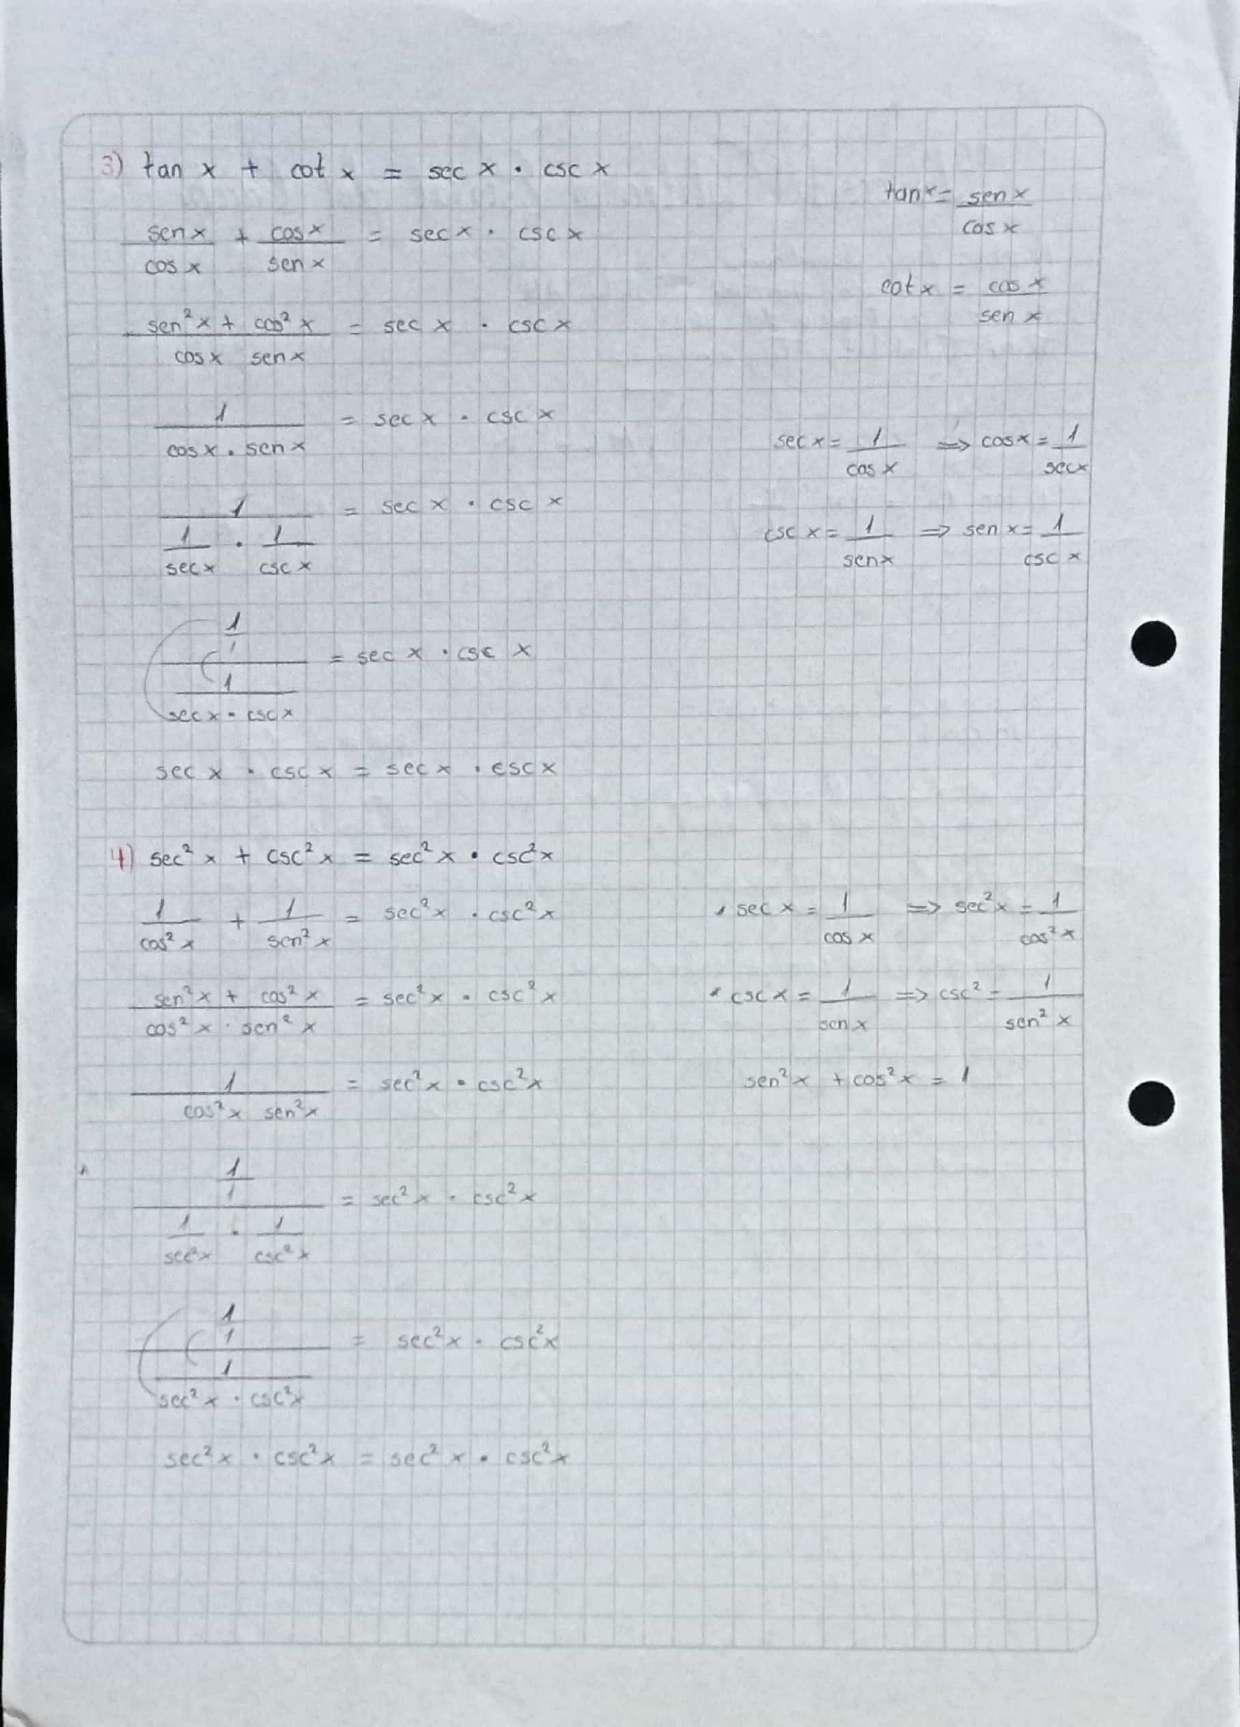 3) tan x + cot x = sec x · csc x
tan x = sen x / cos x
sen x / cos x + cos x / sen x = sec x · csc x
cot x = cos x / sen x
sen² x + cos² x / cos x sen x = sec x · csc x
1 / cos x · sen x = sec x · csc x
sec x = 1 / cos x ⇒ cos x = 1 / sec x
1 / 1 / sec x · 1 / csc x = sec x · csc x
csc x = 1 / sen x ⇒ sen x = 1 / csc x
1 / 1 / 1 / sec x · csc x = sec x · csc x
sec x · csc x = sec x · csc x
4) sec² x + csc² x = sec² x · csc² x
1 / cos² x + 1 / sen² x = sec² x · csc² x
* sec x = 1 / cos x ⇒ sec² x = 1 / cos² x
sen² x + cos² x / cos² x · sen² x = sec² x · csc² x
* csc x = 1 / sen x ⇒ csc² = 1 / sen² x
1 / cos² x sen² x = sec² x · csc² x
sen² x + cos² x = 1
1 / 1 / 1 / sec² x · 1 / csc² x = sec² x · csc² x
1 / 1 / 1 / sec² x · csc² x = sec² x · csc² x
sec² x · csc² x = sec² x · csc² x